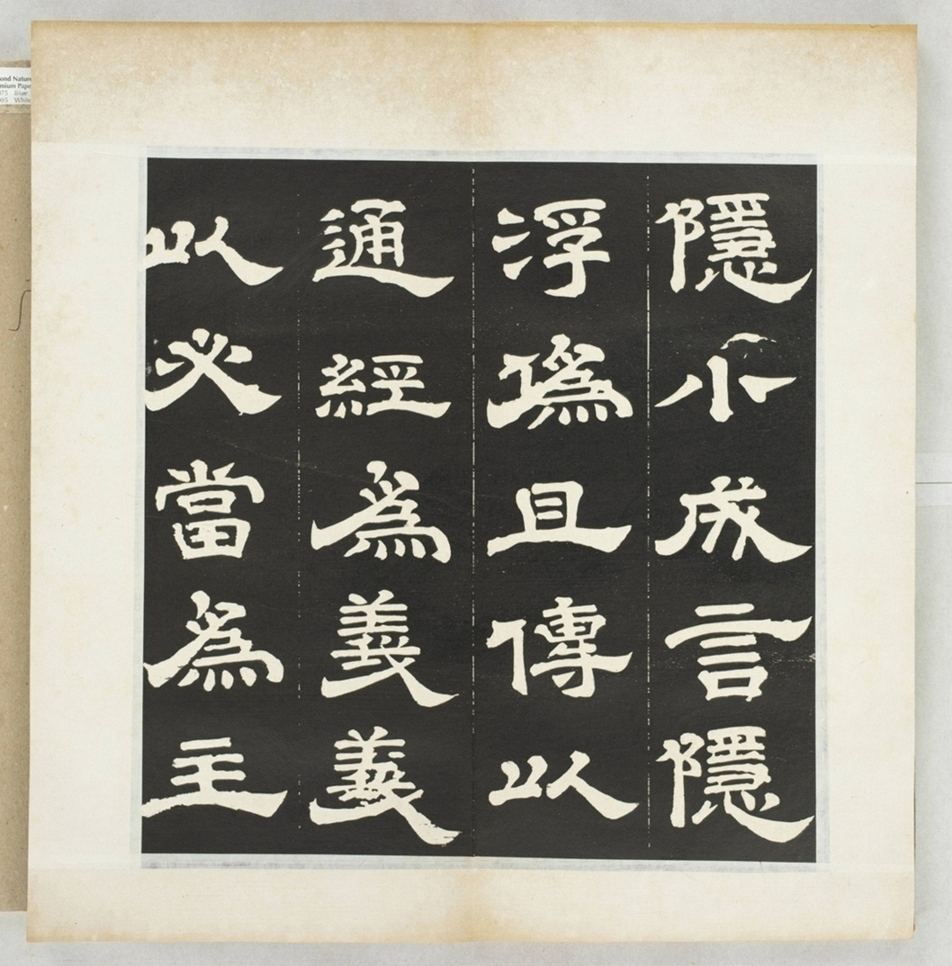 隱小成言隱
浮僞且傳以
通經爲義義
以必當爲主
Blue
White